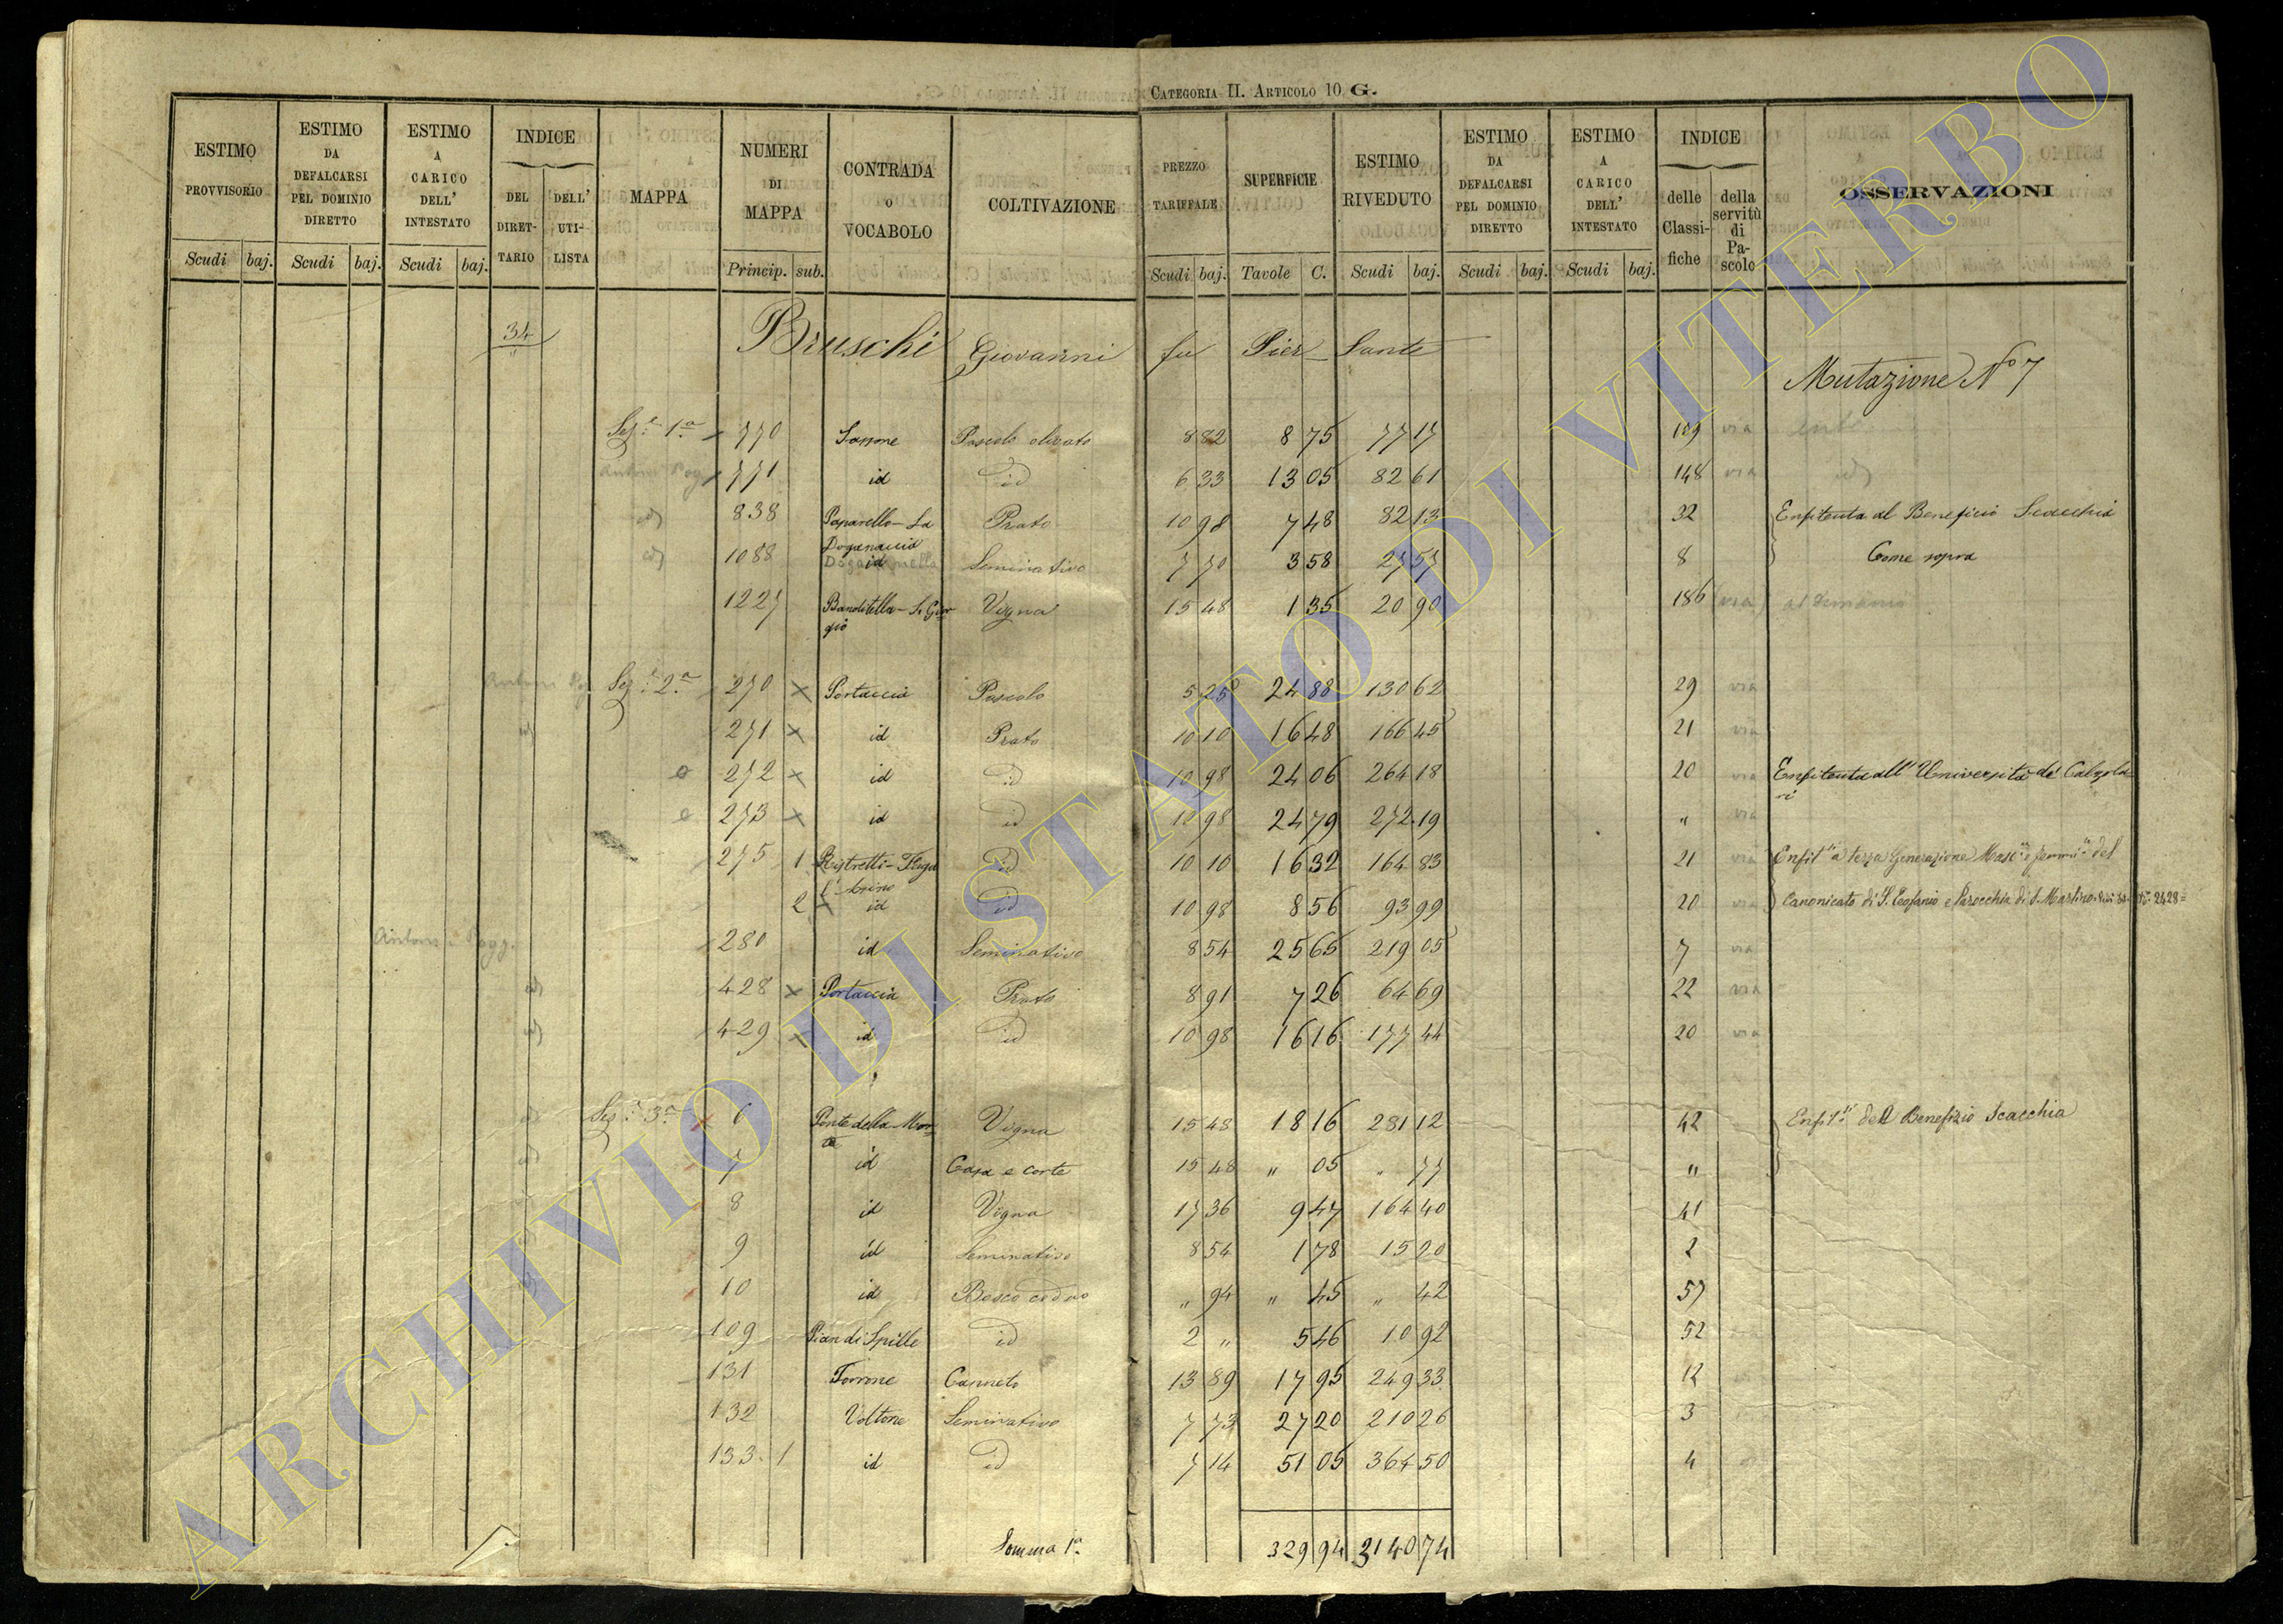 CATEGORIA II. ARTICOLO 10 G.
ESTIMO PROVVISORIO Scudi baj.
ESTIMO DA DEFALCARSI PEL DOMINIO DIRETTO Scudi baj.
ESTIMO A CARICO DELL' INTESTATO Scudi baj.
INDICE DEL DIRET-TARIO DELL' UTI-LISTA
MAPPA
NUMERI DI MAPPA Princip. sub.
CONTRADA O VOCABOLO
COLTIVAZIONE
PREZZO TARIFFALE Scudi baj.
SUPERFICIE Tavole C.
ESTIMO RIVEDUTO Scudi baj.
ESTIMO DA DEFALCARSI PEL DOMINIO DIRETTO Scudi baj.
ESTIMO A CARICO DELL' INTESTATO Scudi baj.
INDICE delle Classi-fiche della servitù di Pa-scolo
OSSERVAZIONI
34 Bruschi Giovanni fu Pier Sante
Mutazione No 7
Sez.e 1a 770 Pascolo olivato 8 82 8 75 77 17 via
771 id id 6 33 13 05 82 61 148 via id
id 838 Paparello - La Prato 10 98 7 48 82 13 32 Enfiteuta al Beneficio Scacchia
Doganaccia
id 1088 id Seminativo 7 70 3 58 27 57 8 Come sopra
1227 Banditella - S. Gior Vigna 15 48 1 35 20 90 186 via
gio
Sez.e 2a 270 x Portaccia Pascolo 5 25 24 88 130 62 29 via
id 271 x id Prato 10 10 16 48 166 45 21 via
272 x id id 10 98 24 06 264 18 20 via Enfiteuta all' Università de' Calzola
ri
273 x id id 10 98 24 79 272 19 " via
275 1 Ristretti - id 10 10 16 32 164 83 21 via Enfit a terza Generazione del
2 id id 10 98 8 56 93 99 20 via Canonicato di S. e Parocchia di S. Martino 2428
280 id Seminativo 8 54 25 65 219 05 7 via
id 428 x Portaccia Prato 8 91 7 26 64 69 22 via
id 429 x id id 10 98 16 16 177 44 20 via
id Sez.e 3a 6 Ponte della Mar Vigna 15 48 18 16 281 12 42 Enfit. del Benefizio Scacchia
ta
id 7 id Casa e corte 15 48 " 05 " 77 "
8 id Vigna 17 36 9 47 164 40 41
9 id Seminativo 8 54 1 78 15 20 2
id 10 id Bosco ceduo " 94 " 45 " 42 57
109 Pian di Spille id 2 " 5 46 10 92 52
131 Torrone Canneto 13 89 17 95 249 33 12
132 Voltone Seminativo 7 73 27 20 210 26 3
133 1 id id 7 14 51 05 364 50 4
Somma 1a 329 94 3140 74
ARCHIVIO DI STATO DI VITERBO